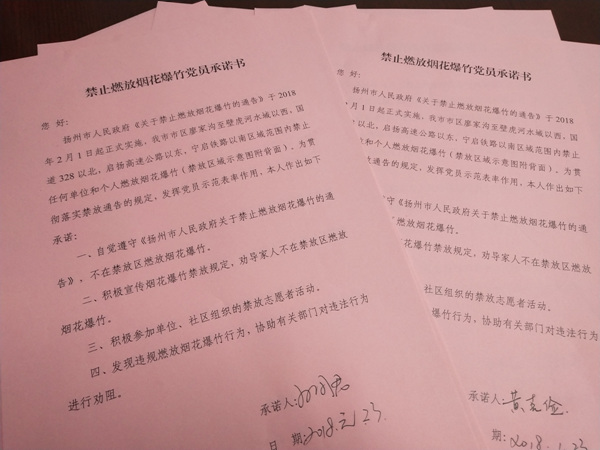 禁止燃放烟花爆竹党员承诺书
您 好:
扬州市人民政府《关于禁止燃放烟花爆竹的通告》于 2018
年 2 月 1 日起正式实施。我市市区廖家沟至壁虎河水域以西、国
道 328 以北,启扬高速公路以东、宁启铁路以南区域范围内禁止
任何单位和个人燃放烟花爆竹(禁放区域示意图附背面)。为贯
彻落实禁放通告的规定,发挥党员示范表率作用,本人作出如下
承诺:
一、自觉遵守《扬州市人民政府关于禁止燃放烟花爆竹的通
告》,不在禁放区燃放烟花爆竹。
二、积极宣传烟花爆竹禁放规定,劝导家人不在禁放区燃放
烟花爆竹。
三、积极参加单位、社区组织的禁放志愿者活动。
四、发现违规燃放烟花爆竹行为,协助有关部门对违法行为
进行劝阻。
承诺人:
日 期: 2018.元.23
禁止燃放烟花爆竹党员承诺书
您 好:
扬州市人民政府《关于禁止燃放烟花爆竹的通告》于 2018
月 1 日起正式实施。我市市区廖家沟至壁虎河水域以西、国
328 以北,启扬高速公路以东、宁启铁路以南区域范围内禁止
单位和个人燃放烟花爆竹(禁放区域示意图附背面)。为贯
实禁放通告的规定,发挥党员示范表率作用,本人作出如下
守《扬州市人民政府关于禁止燃放烟花爆竹的通
区燃放烟花爆竹。
烟花爆竹禁放规定,劝导家人不在禁放区燃放
社区组织的禁放志愿者活动。
爆竹行为,协助有关部门对违法行
承诺人: 黄
期: 2018.1.23